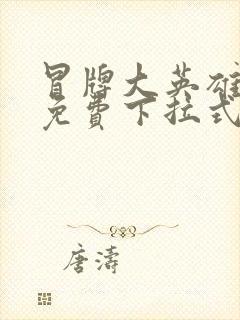 冒牌大英雄
免費下拉式
唐濤